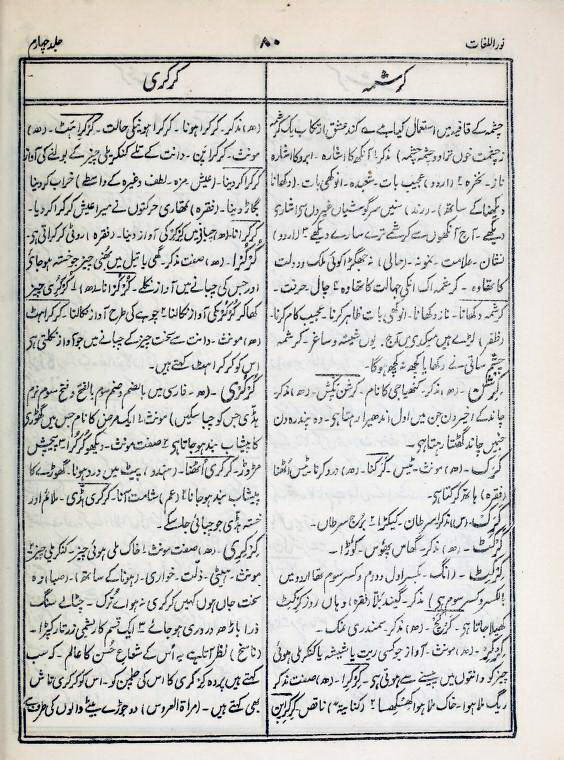 نور اللغات
۸۰
جلد چہارم
کرشمہ
کرکری
چشمہ کے قافیہ میں استعمال کیا ہے
مذکر۔ آنکھ کا اشارہ۔ ابرو کا اشارہ
ناز۔ نخرہ ۲ (اردو) عجیب بات۔ شعبدہ۔ انوکھی بات۔ (دکھانا
دیکھنا کے ساتھ)۔ (رند) سنیں سرگوشیاں غیروں سے اشارے بھی
دیکھے۔ آج آنکھوں سے کرشمے ترے سارے دیکھے ۳ (اردو)
نشان۔ علامت۔ نمونہ۔ (حالی) نہ جھگڑا کوئی ملک و دولت
کا تھا وہ۔ کرشمہ اک انکی جہالت کا تھا وہ
کرشمہ دکھانا۔ ناز دکھانا۔ انوکھی بات ظاہر کرنا۔ عجیب کام کرنا۔
(ظفر) لڑے ہیں میکدہ میں آج یوں شیشہ و ساغر۔ کرشمہ
چشم ساقی نے دکھایا کچھ نہ کچھ ہوگا۔
کرشن۔ (ھ) مذکر۔ کنھیا جی کا نام۔ کرشن پکش۔ (ھ) مذکر۔
چاند کے اخیر دن جن میں اول اندھیرا رہتا ہے۔ وہ پندرہ دن
جنمیں چاند گھٹتا رہتا ہے۔
کرک۔ (ھ) مونث۔ ٹیس۔ کرکنا۔ (ھ) درد کرنا۔ ٹیس اُٹھنا
(فقرہ) ہاتھ کرکتا ہے۔
کرک۔ (س) مذکر۔ سرطان۔ کیکڑا ۲ برج سرطان۔
کرکٹ۔ (ھ) مذکر۔ گھاس پھوس۔ کوڑا۔
کرکٹ۔ (انگ۔ بکسر اول و دوم و کسر سوم تھا اردو میں
بالکسر و کسر سوم ہے) مذکر۔ گیند بلا (فقرہ) وہاں روز کرکٹ
کھیلا جاتا ہے۔ کرکچ۔ (ھ) مذکر۔ سمندری نمک۔
کرکر۔ (ھ) مونث۔ آواز جو کسی ریت یا شیشہ یا کنکر ملی ہوئی
چیز کو دانتوں میں پیسنے سے ہوتی ہے۔ کرکرا۔ (ھ) صفت مذکر
ریگ ملا ہوا۔ خاک ملا ہوا ۲ (کنایۃً) ناقص
(ھ) مذکر۔ کرکرا ہونا۔ کرکرا ہونیکی حالت۔ کرکراہٹ۔ (ھ)
مونث۔ کرکرا پن۔ دانت کے تلے کنکریلی چیز کے بولنے کی آواز
کرکرا کر دینا۔ (عیش۔ مزہ۔ لطف وغیرہ کے واسطے) خراب کر دینا
بگاڑ دینا۔ (فقرہ) تمھاری حرکتوں نے میرا عیش کرکرا کر دیا۔
کرکرانا۔ (ھ) چبانے میں کرکر کی آواز دینا۔ (فقرہ) روٹی کرکراتی ہے۔
کرکرا۔ (ھ) صفت مذکر۔ گھی یا تیل میں بھنی چیز جو خستہ ہو جائے
اور جس کی چبانے میں آواز نکلے۔ کرکرانا۔ (ھ) ۱ کرکری چیز
کھا کر کرکر کی آواز نکالنا ۲ چوہے کی طرح آواز نکالنا۔ کرکراہٹ
(ھ) مونث۔ دانت سے سخت چیز کے چبانے میں جو آواز نکلتی ہے
اس کو کرکراہٹ کہتے ہیں۔
کرکری۔ (ھ۔ فارسی میں بالضم و ضم سوم بالفتح و فتح سوم نرم
ہڈی جس کو چبا سکیں) مونث ۱ ایک مرض کا نام جس میں گھوڑی
کا پیشاب بند ہو جاتا ہے ۲ صفت مونث۔ دیکھو کرکرا ۳ پیچش
مڑوڑ۔ کرکری اُٹھنا۔ (ہندو) پیٹ میں درد ہونا۔ گھوڑے کا
پیشاب بند ہو جانا ۲ (عم) شامت آنا۔ کرکری ہڈی۔ ملائم اور
خستہ ہڈی جو چبائی جا سکے۔
کرکری۔ (ھ) صفت مونث ۱ خاک ملی ہوئی چیز۔ کنکریلی چیز ۲
مونث۔ ہیٹی۔ ذلت۔ خواری۔ (ہونا کے ساتھ)۔ (صبا) وہ
سخت جاں ہوں کہیں کرکری نہ ہو اے ترک۔ چٹالے سنگ
ذرا باڑھ دوری ہو جائے ۳ ایک قسم کا ریشمی زرتار کپڑا۔
(ناسخ) نظر آتا ہے یہ اُس کے شعاع حسن کا عالم۔ کہ سب
کہتے ہیں پردہ کرکری کا اس کی چلمن کو۔ اس کو کرکری تاش
بھی کہتے ہیں۔ (مراۃ العروس) دو جوڑے بیٹے والوں کی طرف سے